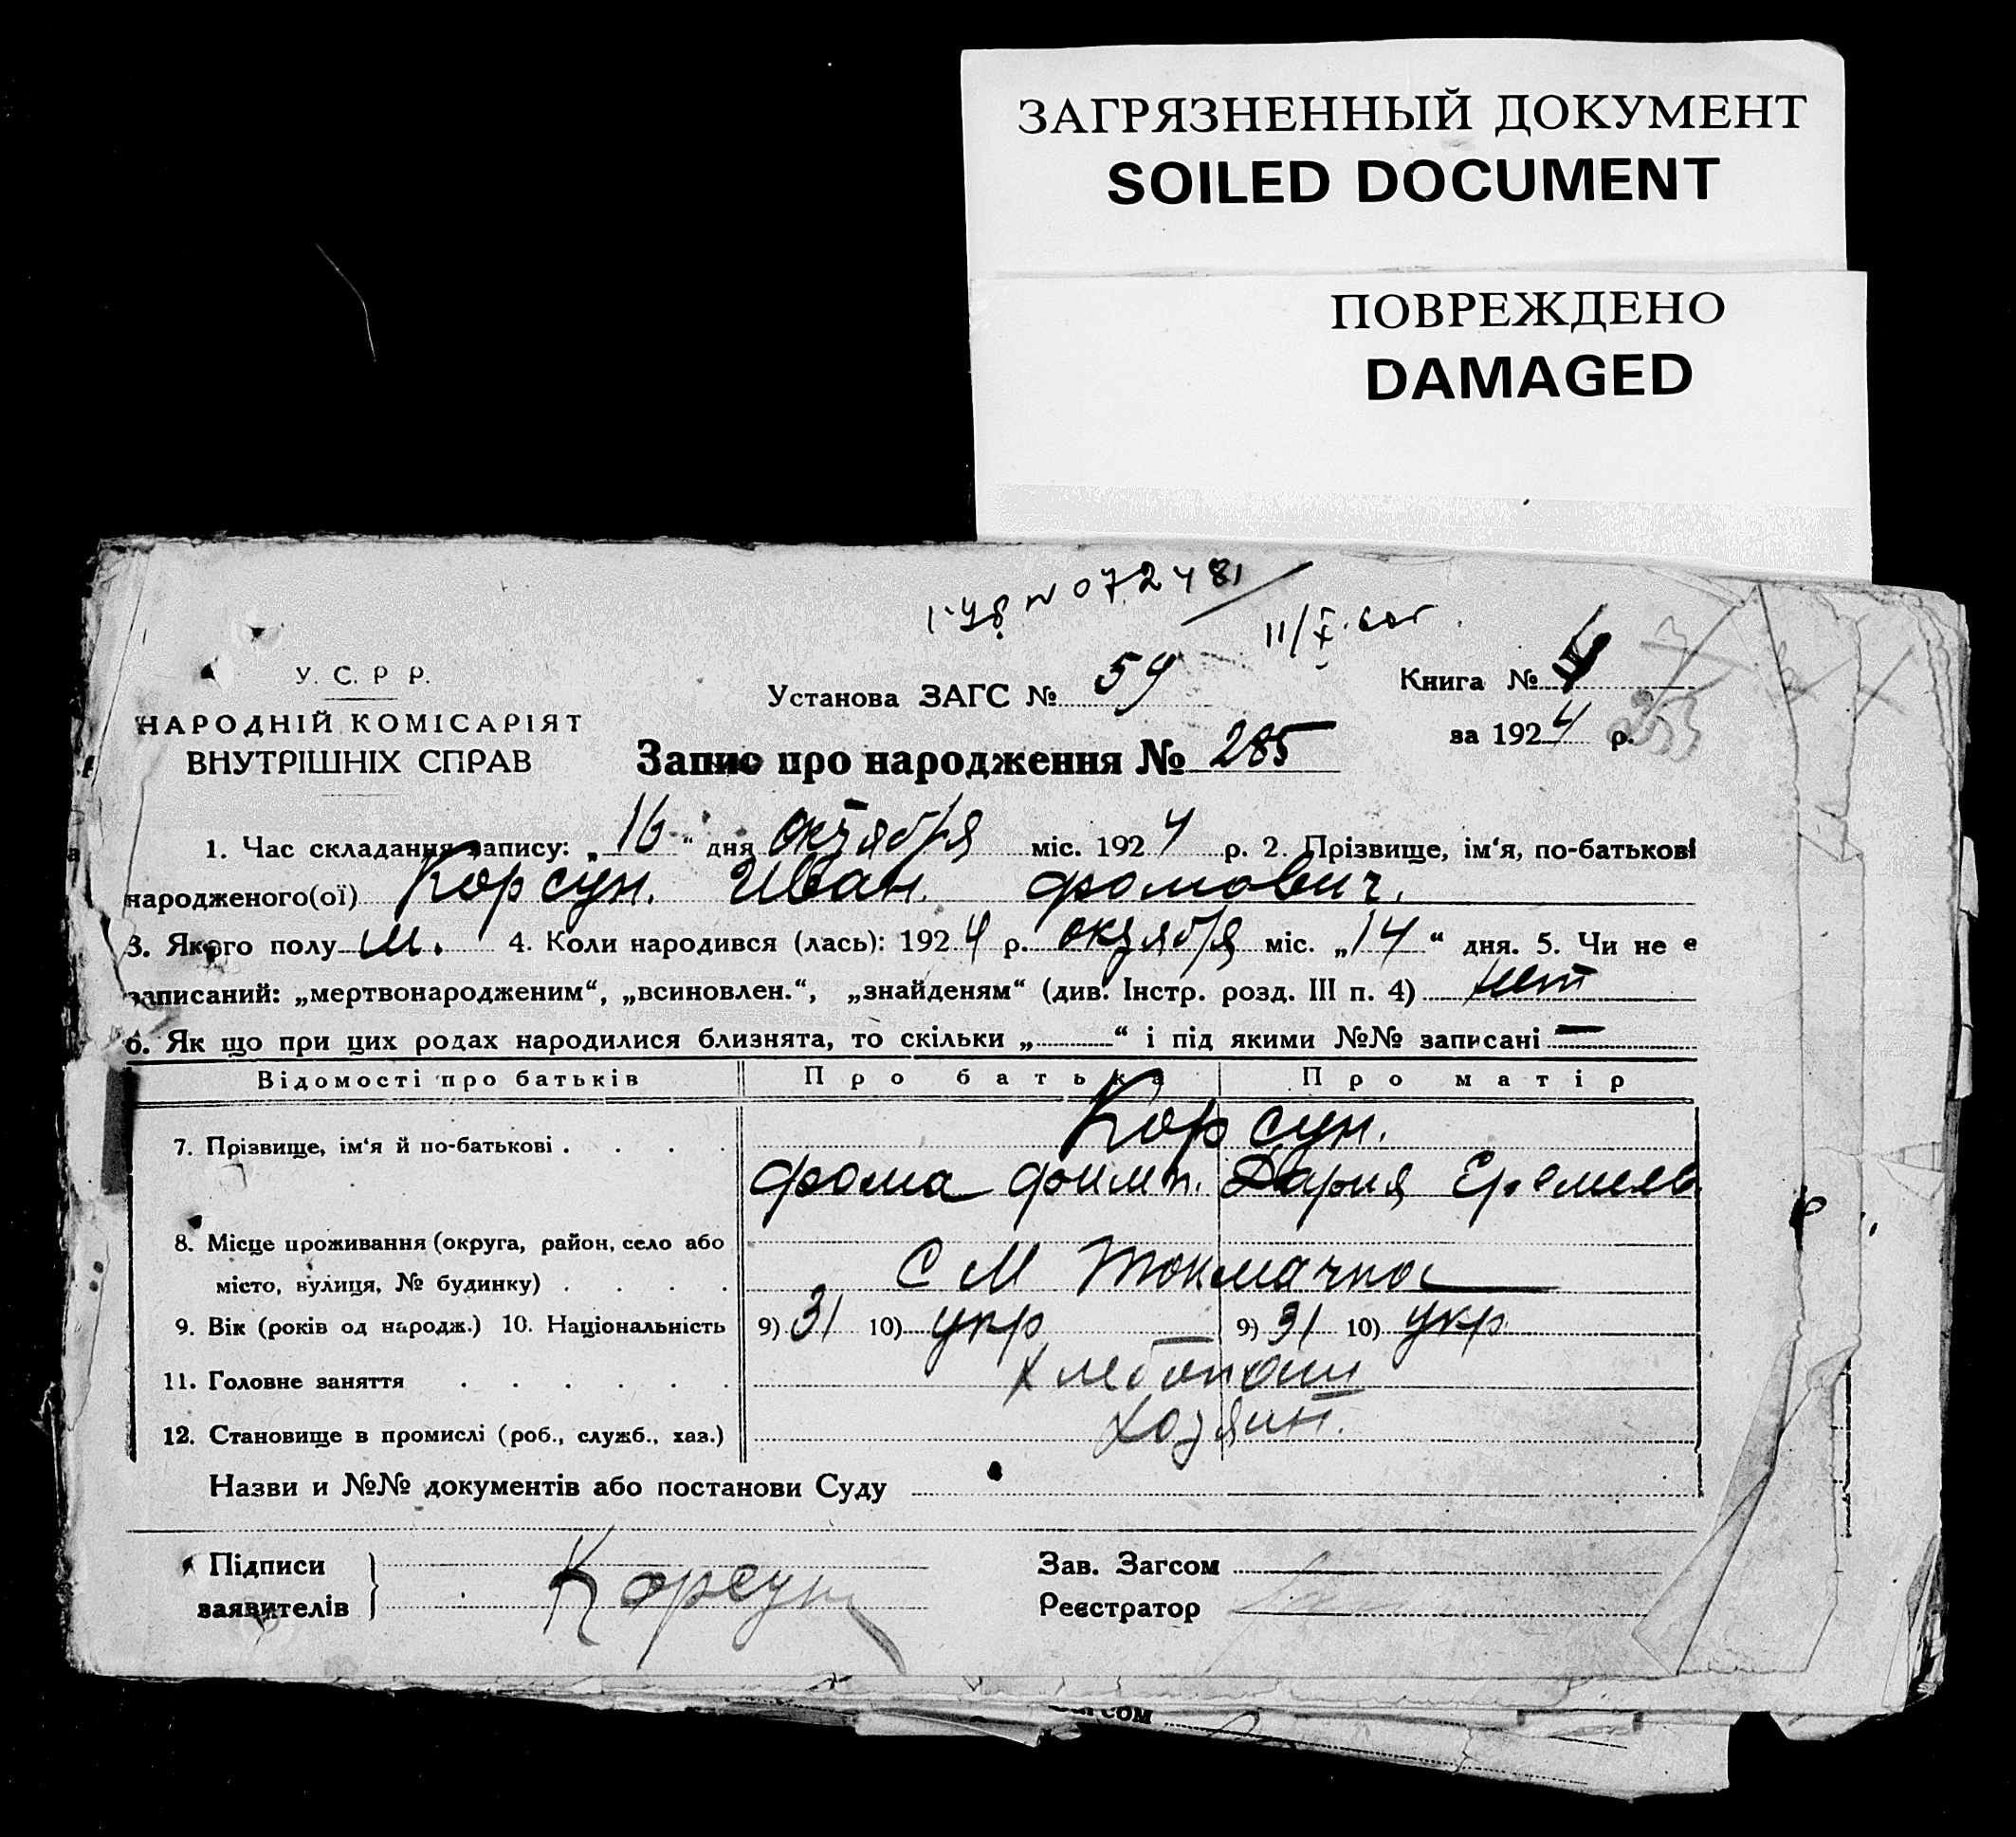 ЗАГРЯЗНЕННЫЙ ДОКУМЕНТ
SOILED DOCUMENT
ПОВРЕЖДЕНО
DAMAGED
N 072481
11/X
У. С. Р Р.
НАРОДНІЙ КОМІСАРІЯТ
ВНУТРІШНІХ СПРАВ
Установа ЗАГС № 54
Книга №
за 1924 р.
Запис про народження № 285
1. Час складання запису: „16“ дня октября міс. 1924 р. 2. Прізвище, ім‘я, по-батькові
народженого(ої) Корсун. Иван. Фомович.
3. Якого полу м. 4. Коли народився (лась): 1924 р. октября міс. „14“ дня. 5. Чи не е
записаний: „мертвонародженим“, „всиновлен.“, „знайденям“ (див. Інстр. розд. III п. 4) нет
6. Як що при цих родах народилися близнята, то скільки „ “ і під якими №№ записані —
Відомості про батьків Про батька Про матір
Корсун.
7. Прізвище, ім‘я й по-батькові
Фома Дария
8. Місце проживання (округа, район, село або
місто, вулиця, № будинку) С М Токмачка
9. Вік (років од народж.) 10. Національність 9) 31 10) укр 9) 31 10) укр
11. Головне заняття хлебопаш
12. Становище в промислі (роб., служб., хаз.) хозяин.
Назви и №№ документів або постанови Суду
Підписи
заявителів Корсун
Зав. Загсом
Реєстратор